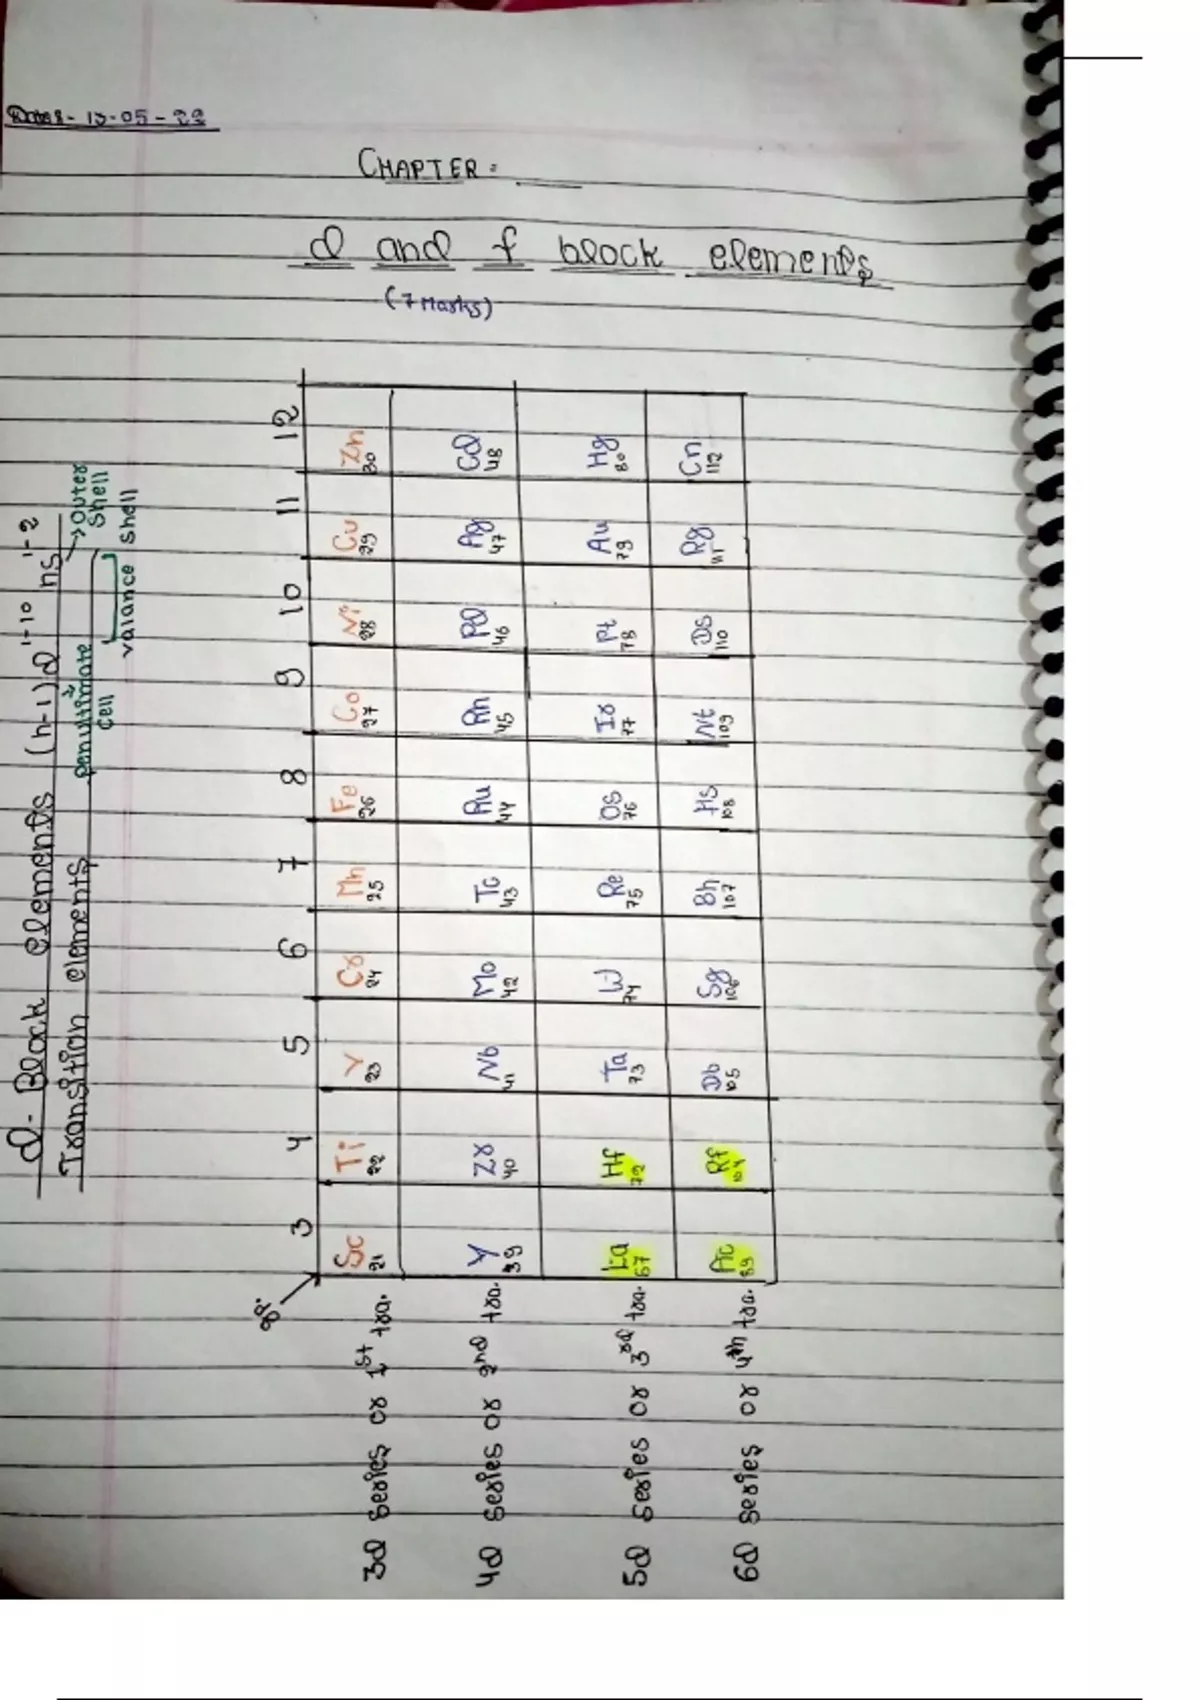 Date:- 13-05-22
CHAPTER :
d and f block elements
(7 Marks)
d- Block elements (n-1)d¹⁻¹⁰ ns¹⁻²
Transition elements
penultimate cell
→ Outer shell
valance shell
gp. 3 4 5 6 7 8 9 10 11 12
3d series or 1st tra. Sc 21 Ti 22 V 23 Cr 24 Mn 25 Fe 26 Co 27 Ni 28 Cu 29 Zn 30
4d series or 2nd tra. Y 39 Zr 40 Nb 41 Mo 42 Tc 43 Ru 44 Rh 45 Pd 46 Ag 47 Cd 48
5d series or 3rd tra. La 57 Hf 72 Ta 73 W 74 Re 75 Os 76 Ir 77 Pt 78 Au 79 Hg 80
6d series or 4th tra. Ac 89 Rf 104 Db 105 Sg 106 Bh 107 Hs 108 Mt 109 Ds 110 Rg 111 Cn 112